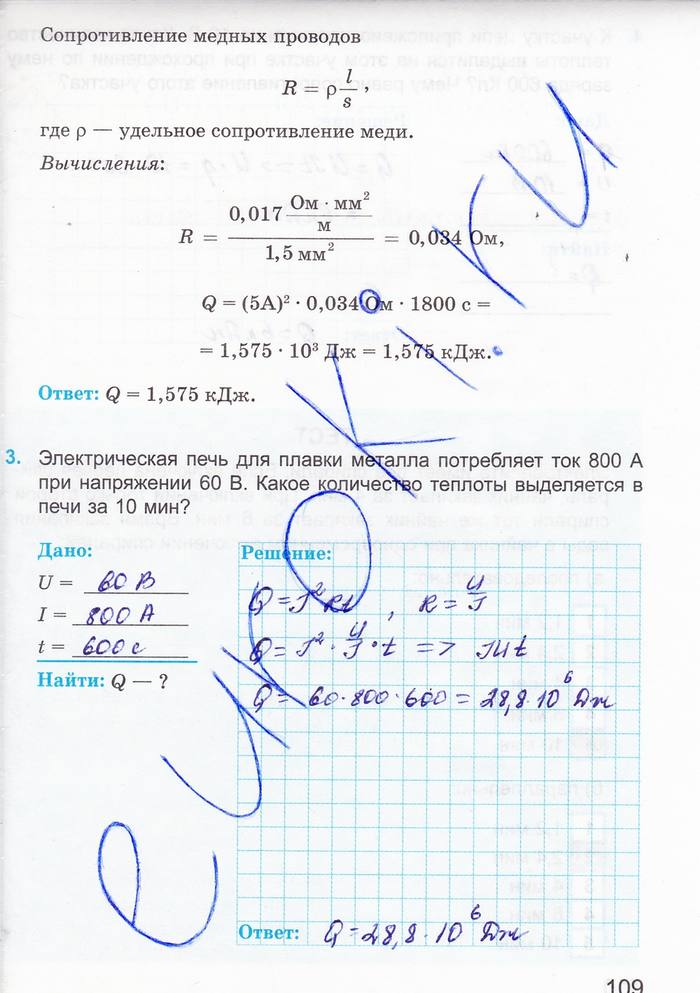 Сопротивление медных проводов
R = ρ l/s,
где ρ — удельное сопротивление меди.
Вычисления:
R = (0,017 Ом · мм²/м)/(1,5 мм²) = 0,034 Ом,
Q = (5А)² · 0,034 Ом · 1800 с =
= 1,575 · 10³ Дж = 1,575 кДж.
Ответ: Q = 1,575 кДж.
3. Электрическая печь для плавки металла потребляет ток 800 А
при напряжении 60 В. Какое количество теплоты выделяется в
печи за 10 мин?
Дано:
U = 60 В
I = 800 А
t = 600 с
Найти: Q — ?
Решение:
Q = I² Rt, R = U/I
Q = I² · U/I · t => IUt
Q = 60·800·600 = 28,8·10⁶ Дж
Ответ: Q = 28,8·10⁶ Дж
109